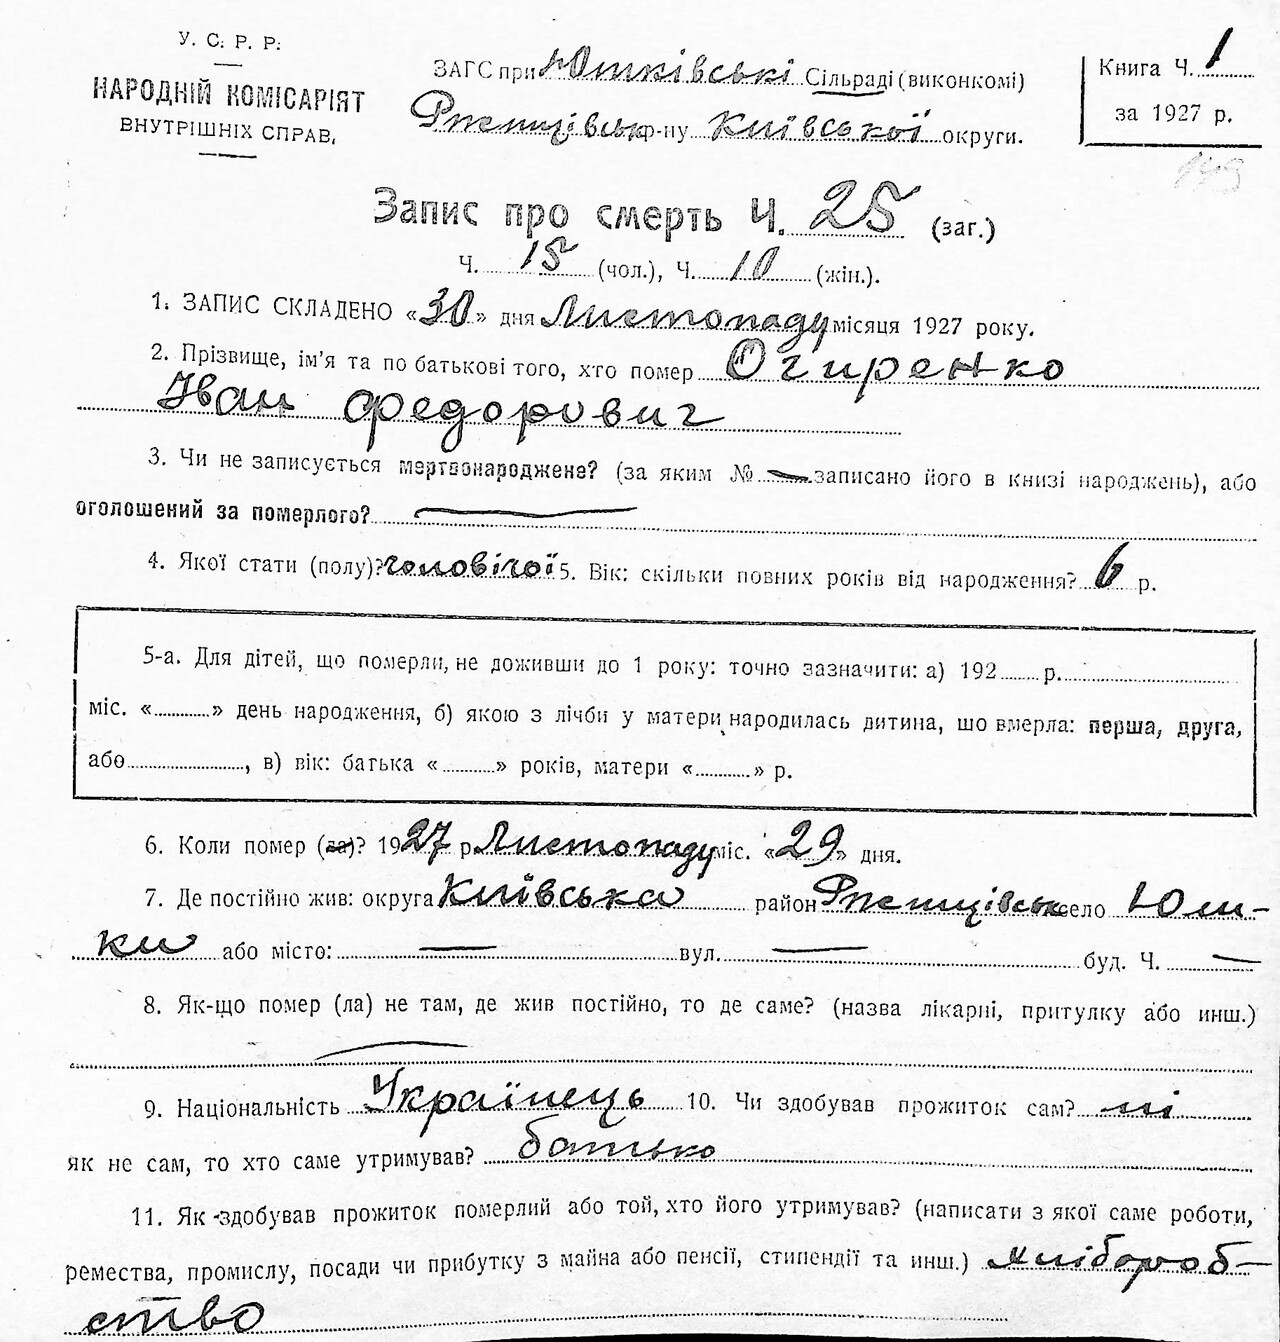 У. С. Р. Р.
НАРОДНІЙ КОМІСАРІЯТ
ВНУТРІШНІХ СПРАВ.
ЗАГС при Юшківській Сільраді (виконкомі)
Ржищівськ р-ну Київської округи.
Книга Ч. 1
за 1927 р.
145
Запис про смерть Ч. 25 (заг.)
Ч. 15 (чол.), Ч. 10 (жін.).
1. ЗАПИС СКЛАДЕНО «30» дня Листопаду місяця 1927 року.
2. Прізвище, ім'я та по батькові того, хто помер Огиренко
Іван Федорович
3. Чи не записується мертвонароджене? (за яким № — записано його в книзі народжень), або
оголошений за померлого? —
4. Якої стати (полу)? чоловічої 5. Вік: скільки повних років від народження? 6 р.
5-а. Для дітей, що померли, не доживши до 1 року: точно зазначити: а) 192 р.
міс. « » день народження, б) якою з лічби у матери народилась дитина, що вмерла: перша, друга,
або , в) вік: батька « » років, матери « » р.
6. Коли помер (ла)? 1927 р Листопаду міс. «29» дня.
7. Де постійно жив: округа Київська район Ржищівськ село Юш-
ки або місто: — вул. — буд. Ч. —
8. Як-що помер (ла) не там, де жив постійно, то де саме? (назва лікарні, притулку або инш.)
—
9. Національність Українець 10. Чи здобував прожиток сам? ні
як не сам, то хто саме утримував? батько
11. Як здобував прожиток померлий або той, хто його утримував? (написати з якої саме роботи,
ремества, промислу, посади чи прибутку з майна або пенсії, стипендії та инш.) хлібороб-
ство